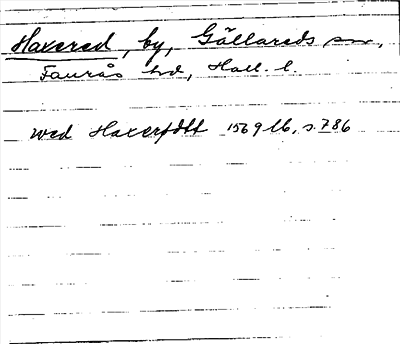 Havered, by, Gällareds sn,
Faurås hd, Hall. l.
wed Haxerødtt 1569 lb, s. 786